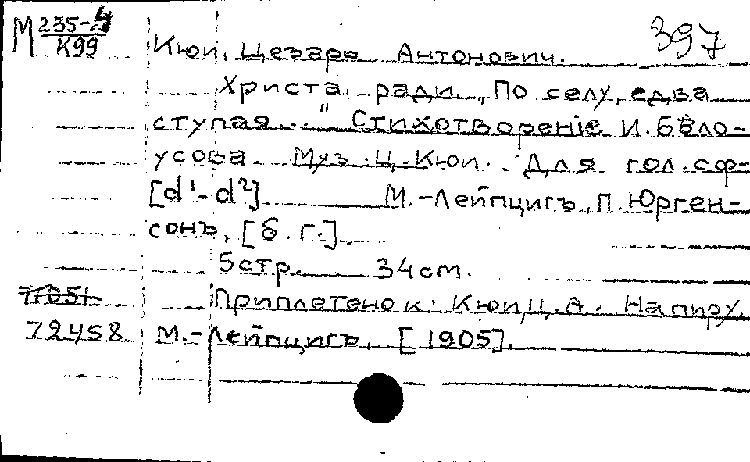 М 235-4
К99
397
Кюи, Цезарь Антонович.
Христа ради. „По селу, едва
ступая..." Стихотворенiе И. Бѣло-
усова. Муз. Ц. Кюи. Для гол. с ф.
[d¹-d²] М.-Лейпцигъ, П. Юрген-
сонъ, [б. г.].
5 стр. 34 см.
Приплетено к: Кюи, Ц. А. На пиру.
72458 М.-Лейпцигъ, [1905].